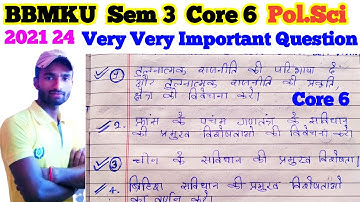 BBMKU Sem 3 Core 6 Pol.Sci
2021 24 Very Very Important Question
① तुलनात्मक राजनीति की परिभाषा दें
और तुलनात्मक राजनीति की प्रकृति,
क्षेत्र की विवेचना करें।
Core 6
2. फ्रांस के पंचम गणतंत्र के संविधान
की प्रमुख विशेषताओं की विवेचना करें।
③ चीन के संविधान की प्रमुख विशेषता।
4. ब्रिटिश संविधान की प्रमुख विशेषताओं
का वर्णन करें।